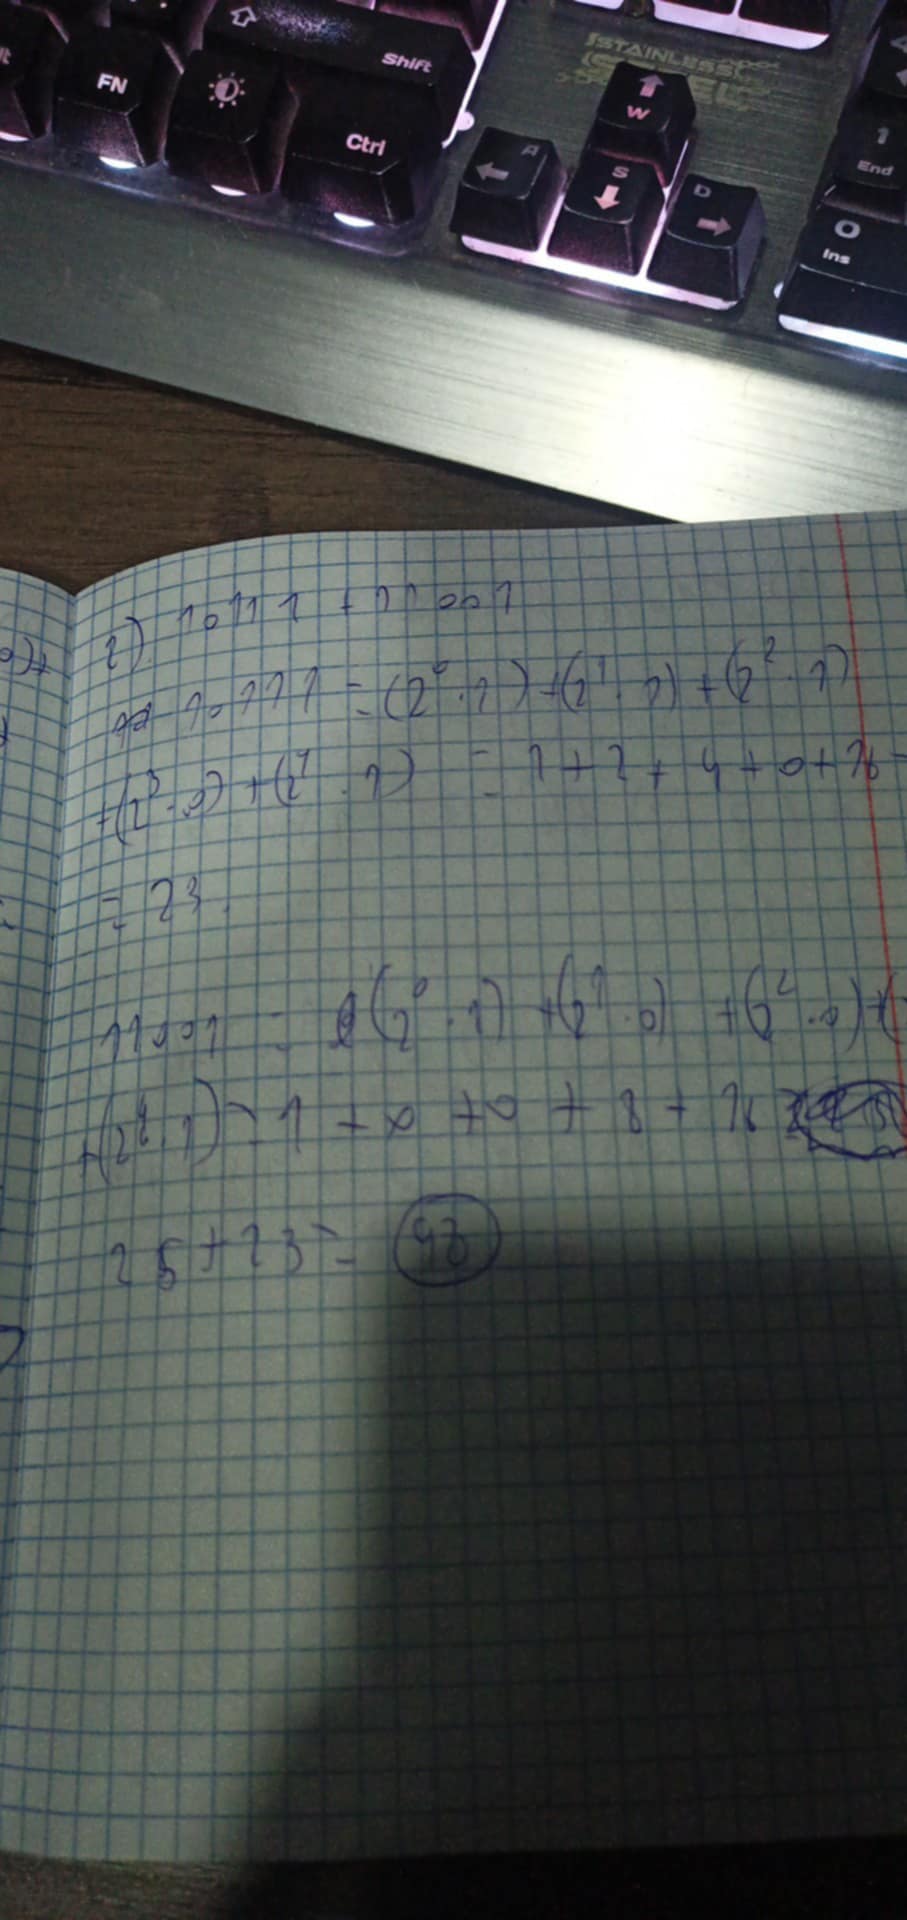 Shift
FN
Ctrl
STAINLESS
W
A
S
D
1
End
0
Ins
2) 10111 + 11001
10111 = (2⁰ · 1) + (2¹ · 1) + (2² · 1)
+ (2³ · 0) + (2⁴ · 1) = 1 + 2 + 4 + 0 + 16 =
= 23
11001 = (2⁰ · 1) + (2¹ · 0) + (2² · 0) + (
+ (2⁴ · 1) = 1 + 0 + 0 + 8 + 16
25 + 23 = 48